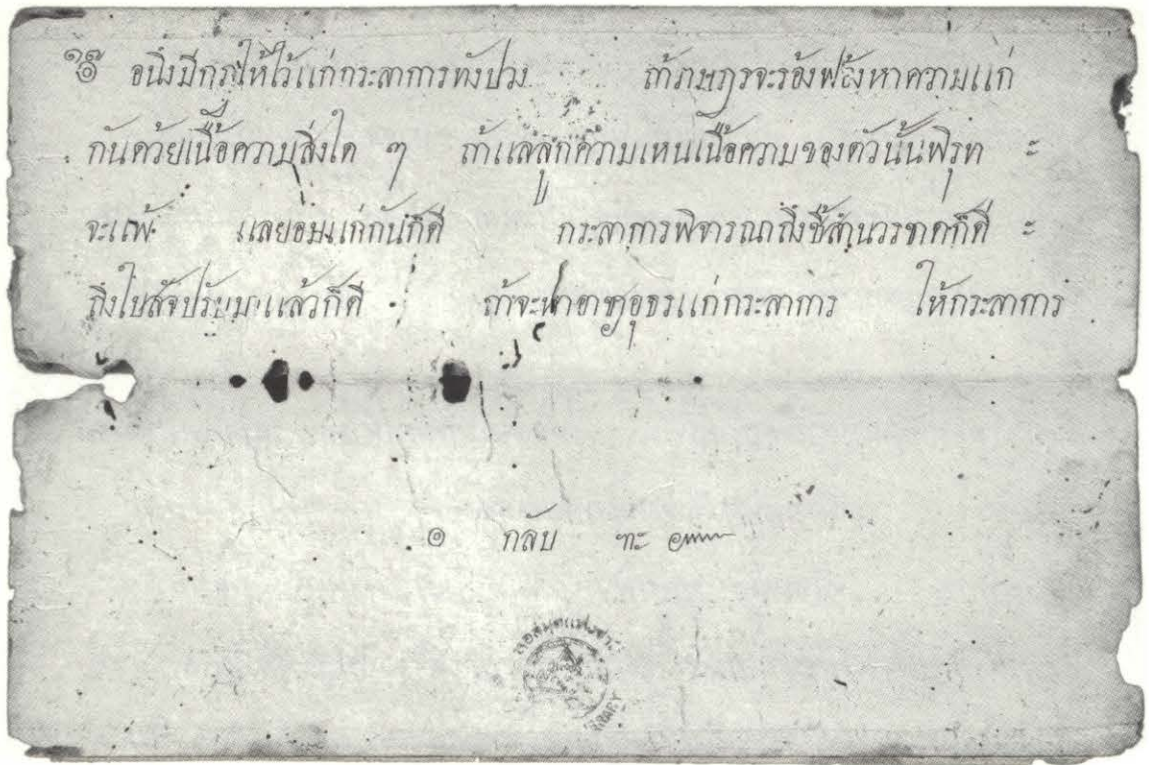 ๏ อนึ่งมีกฎให้ไว้แก่กระลาการทังปวง ถ้าราษฎรจะร้องฟ้องหาความแก่
กันด้วยเนื้อความสิ่งใด ๆ ถ้าแลลูกความเหนเนื้อความของตัวนั้นพิรุท ะ
จะแพ้ แลยอมแก่กันก็ดี กระลาการพิจารณาถึงชี้สำนวรขาดก็ดี ะ
ถึงใบสัจปรับมาแล้วก็ดี ถ้าจะ แก่กระลาการ ให้กระลาการ
๏ กลับ ฯะ
หอสมุดแห่งชาติ